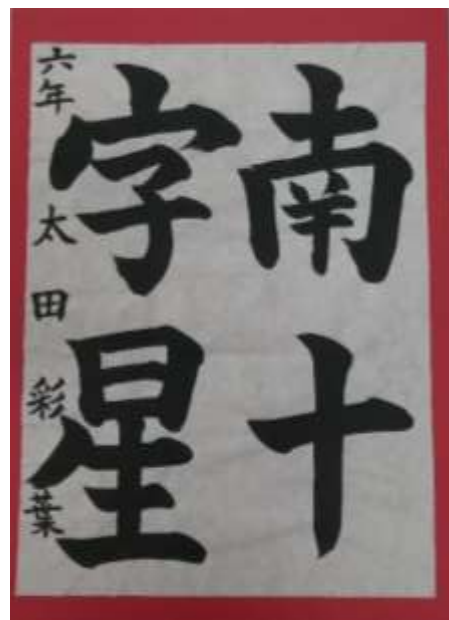 南十
字星
六年 太田彩葉